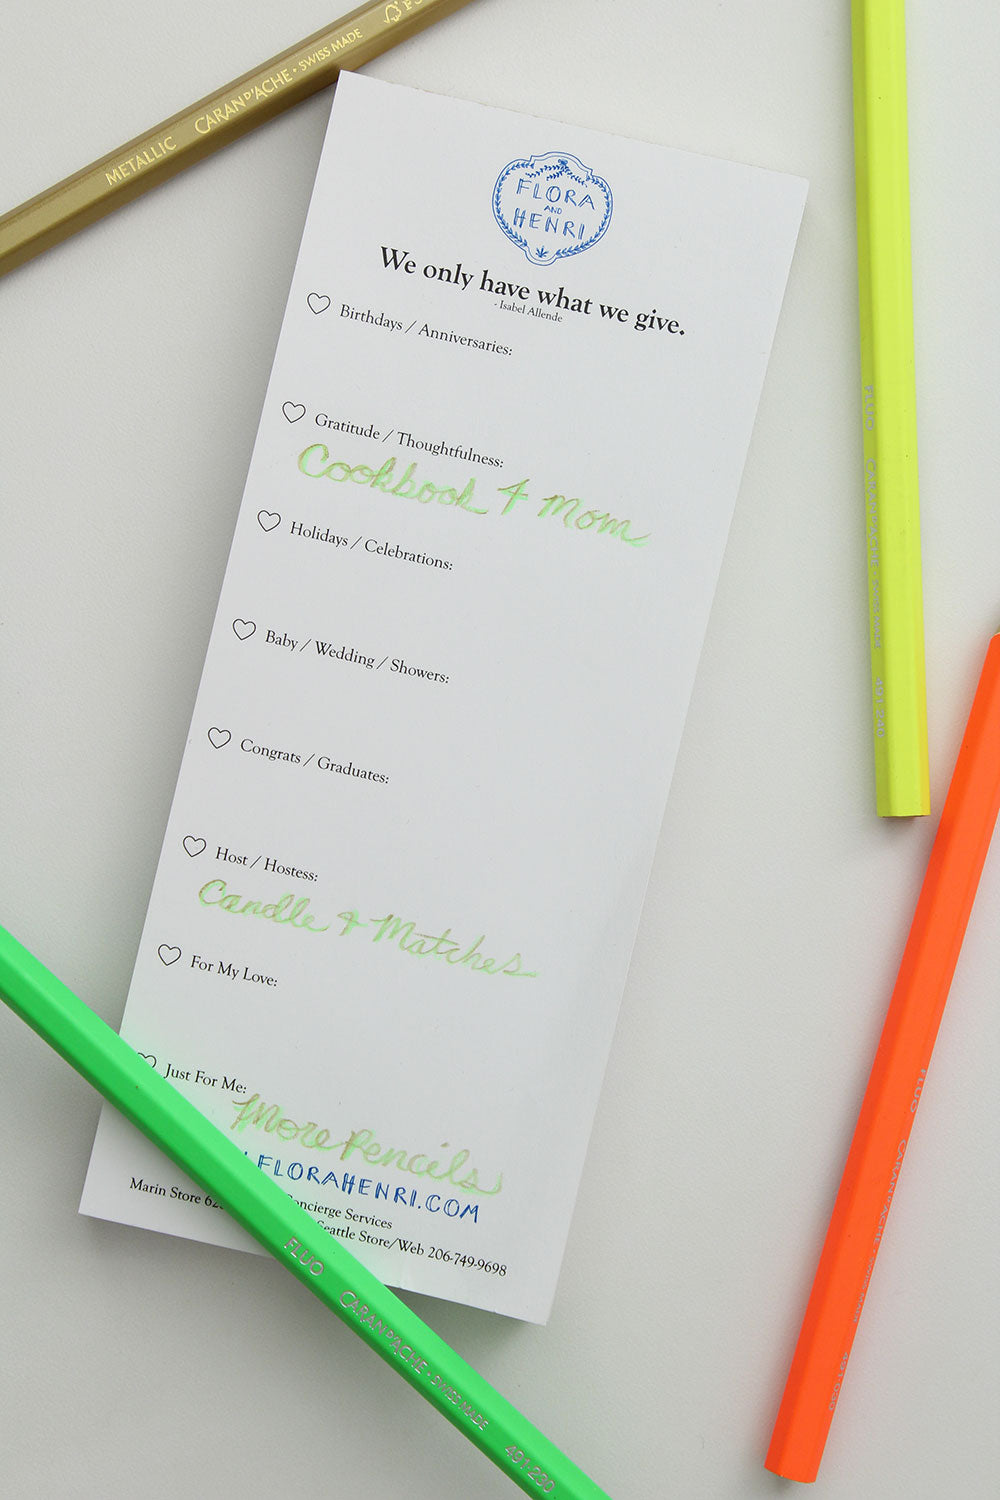 METALLIC CARAN D'ACHE • SWISS MADE FS
FLORA
AND
HENRI
We only have what we give.
- Isabel Allende
Birthdays / Anniversaries:
Gratitude / Thoughtfulness:
Cookbook 4 Mom
Holidays / Celebrations:
Baby / Wedding / Showers:
Congrats / Graduates:
Host / Hostess:
Candle & Matches
For My Love:
Just For Me:
More Pencils
.FLORAHENRI.COM
Concierge Services
Marin Store Seattle Store/Web 206-749-9698
FLUO CARAN D'ACHE • SWISS MADE 491-230
FLUO CARAN D'ACHE • SWISS MADE
FLUO CARAN D'ACHE • SWISS MADE 491-030